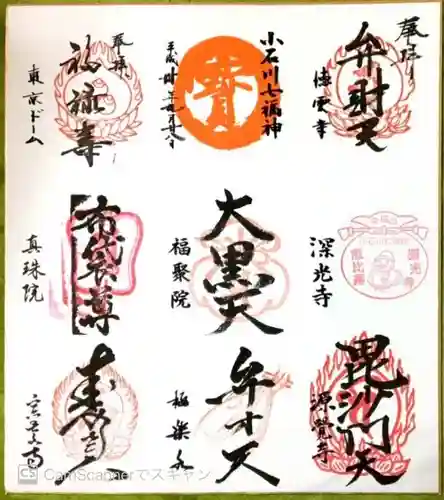 奉拝
弁財天
徳雲寺
小石川七福神
寳
平成卅一年
奉拝
福禄寿
東京ドーム
深光寺
恵比寿
深光寺
大黒天
福聚院
布袋尊
真珠院
毘沙門天
源覚寺
弁才天
極楽水
寿老人
宗慶寺
CS CamScannerでスキャン